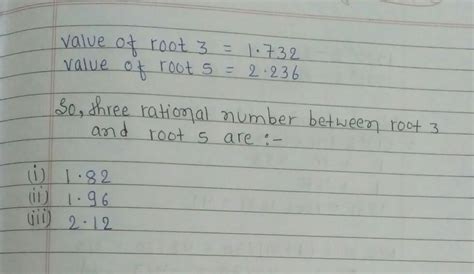 value of root 3 = 1.732
value of root 5 = 2.236
So, three rational number between root 3
and root 5 are :-
(i) 1.82
(ii) 1.96
(iii) 2.12